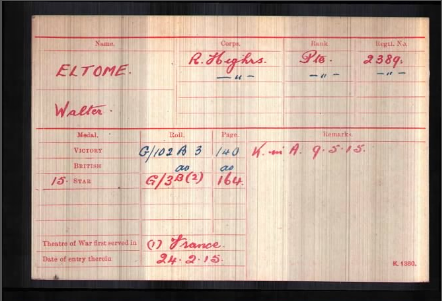 Name. Corps. Rank Regtl. No.
ELTOME. R. Highrs. Pte. 2389.
— " — — " — — " —
Walter.
Medal. Roll. Page. Remarks
VICTORY G/102 B 3 140 K. in A. 9.5.15.
BRITISH do do
15 STAR G/3B(2) 164.
Theatre of War first served in (1) France.
Date of entry therein 24.2.15
K. 1380.